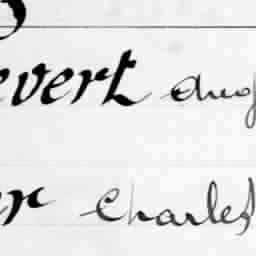 evert
er Charles